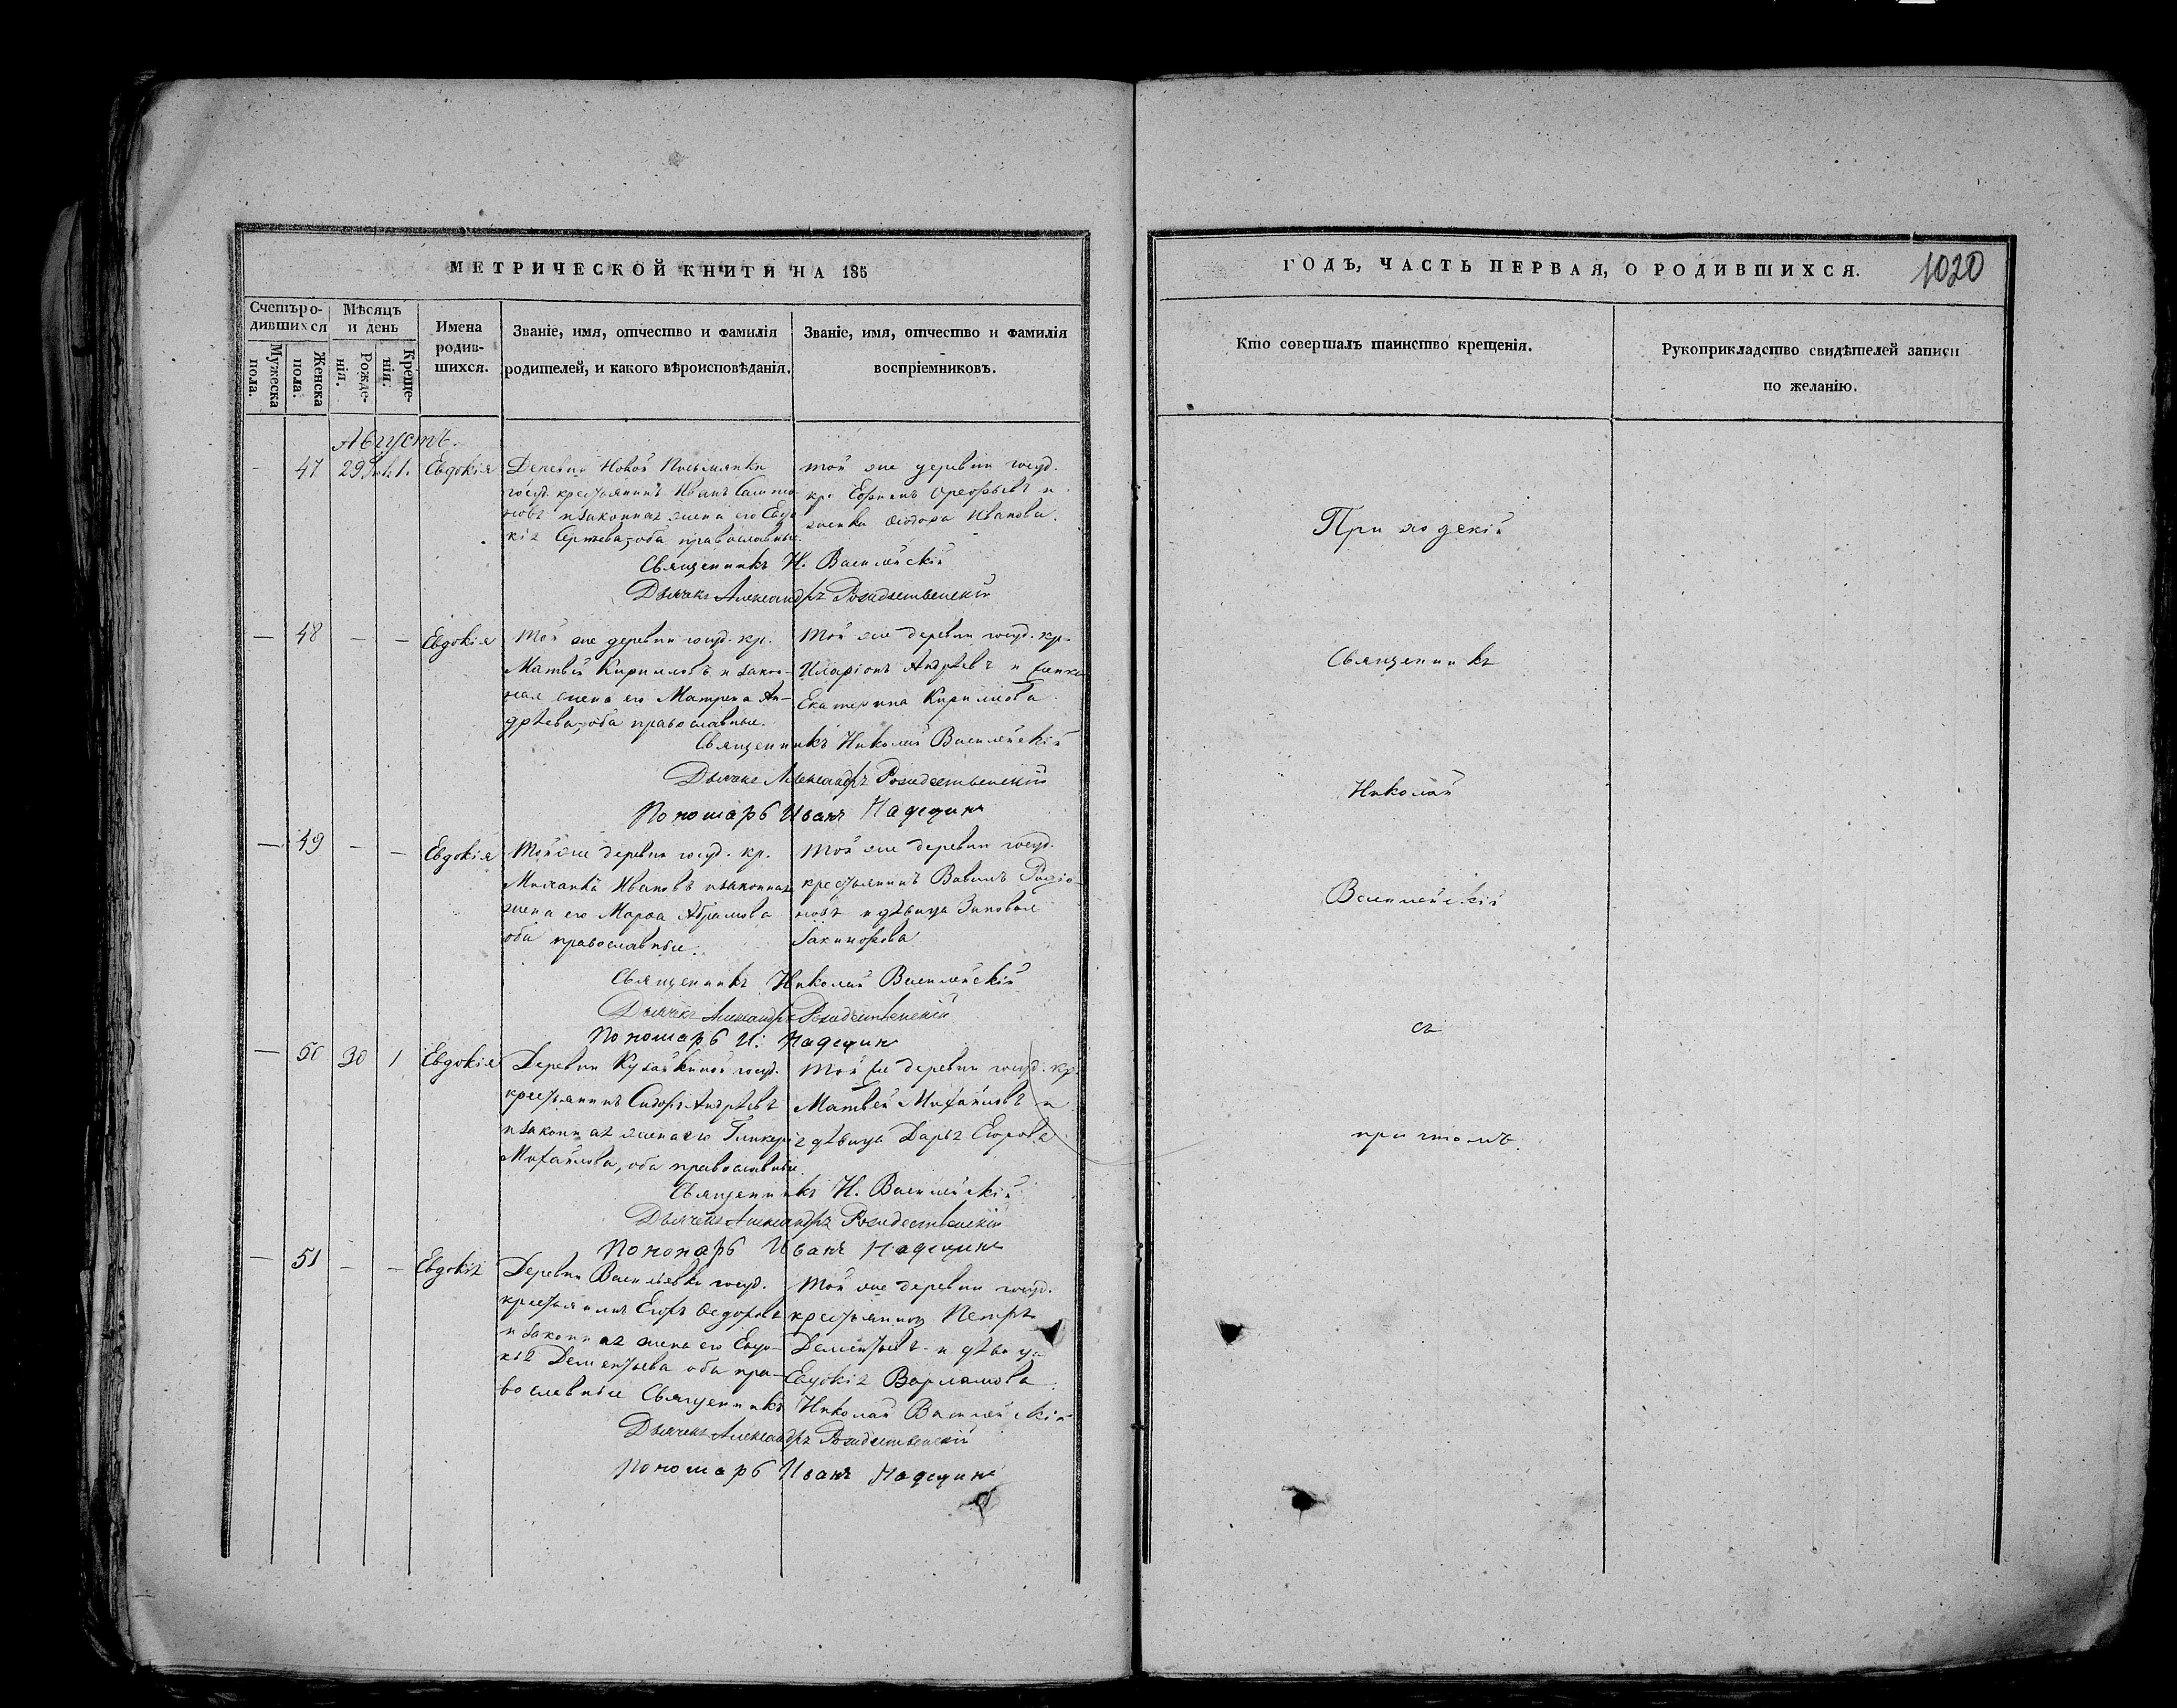 МЕТРИЧЕСКОЙ КНИГИ НА 185
Счетъ ро-
дившихся
Мужеска
пола.
Женска
пола.
Мѣсяцъ
и день
Рожде-
нія.
Креще-
нія.
Имена
родив-
шихся.
Званіе, имя, отчество и фамилія
родителей, и какого вѣроисповѣданія.
Званіе, имя, отчество и фамилія
воспріемниковъ.
Августъ.
47 29 1. Евдокія
Деревни Новой Письмянки
госуд. крестьянинъ Иванъ
новъ и законная жена его Евдо
кія Сергѣева, оба православные.
той же деревни госуд.
кр. Ефимъ и
женка Ѳеодора Иванова.
Священникъ Н. Василейскій
Дьячекъ Александръ Рождественскій
— 48 — — Евдокія
Той же деревни госуд. кр.
Матвѣй Кирилловъ и закон-
ная жена его Матрена Ан-
дрѣева, оба православные.
Той же деревни госуд. кр-
Иларіонъ Андрѣевъ и женка
Екатерина Кирилова
Священникъ Николай Василейскій
Дьячекъ Александръ Рождественскій
Пономарь Иванъ Надеждинъ
— 49 — — Евдокія
Той же деревни госуд. кр.
Ивановъ и законная
жена его Марѳа Абрамова
оба православные.
Той же деревни госуд.
крестьянинъ Вавилъ Родіо-
новъ и дѣвица Зиновья
Священникъ Николай Василейскій
Дьячекъ Александръ Рождественскій
Пономарь И: Надеждинъ
— 50 30 1 Евдокія
Деревни Кузайкиной госуд.
крестьянинъ Сидоръ Андрѣевъ
и законная жена его Гликерія
Михайлова, оба православные.
Той же деревни госуд. кр.
Матвей Михайловъ и
дѣвица Дарья Егорова
Священникъ Н. Василейскій
Дьячекъ Александръ Рождественскій
Пономарь Иванъ Надеждинъ
— 51 — — Евдокія
Деревни Васильевки госуд.
крестьянинъ Егоръ Ѳедоровъ
и законная жена его Евдо-
кія Дементьева оба пра-
вославные
Той же деревни госуд.
крестьянинъ Петръ
Дементьевъ и дѣвица
Евдокія Варламова.
Священникъ Николай Василейскій
Дьячекъ Александръ Рождественскій
Пономарь Иванъ Надеждинъ
ГОДЪ, ЧАСТЬ ПЕРВАЯ, О РОДИВШИХСЯ.
1020
Кто совершалъ таинство крещенія.
Рукоприкладство свидѣтелей записи
по желанію.
Приходскій
Священникъ
Николай
Василейскій
съ
причтомъ.